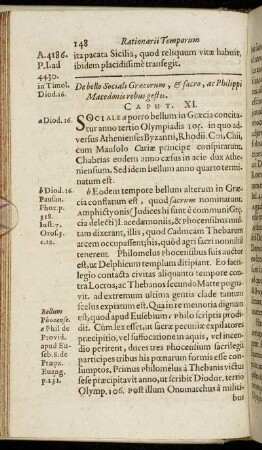 148 Rationarii Temporum
A. 4186.
P. I. ad
4430.
in Timol.
Diod. 16.
ita pacata Sicilia, quod reliquum vitæ habuit,
ibidem placidissimè transegit.
De bello Sociali Græcorum, & sacro, ac Philippi
Macedonis rebus gestis.
CAPUT. XI.
a Diod. 16.
SOCIALE a porro bellum in Græcia concita-
tur anno tertio Olympiadis 105. in quo ad-
versus Athenienses Byzantii, Rhodii, Coi, Chii,
cum Mausolo Cariæ principe conspirarunt.
Chabrias eodem anno cæsus in acie dux Athe-
niensium. Sed idem bellum anno quarto termi-
natum est.
b Diod. 16.
Pausan.
Phoc. p.
318.
Iust. 7.
Oros. 3.
c. 12.
b Eodem tempore bellum alterum in Græ-
cia conflatum est, quod sacrum nominarunt.
Amphictyonis (Judices hi sunt è communi Græ-
cia delecti) Lacedæmoniis, & Phocensibus mul-
tam dixerant, illis, quod Cadmeam Thebarum
arcem occupassent; his, quòd agri sacri nonnihil
arassent. Philomelus Phocensibus suis auctor
est, ut Delphicum templum diripiant. Eo sacri-
legio contacta civitas aliquanto tempore con-
tra Locros, ac Thebanos secundo Marte pugna-
vit, ad extremum ultima gentis clade tantum
scelus expiatum est. Qua in re memoria dignum
Bellum
Phocense.
a Phil de
Provid.
apud Eu-
seb. 8. de
Præpa.
Euang.
p. 131.
est, quod apud Eusebium c Philo scriptis prodi-
dit. Cùm lex esset, ut sacræ pecuniæ expilatores
præcipitio, vel suffocatione in aquis, vel incen-
dio perirent, duces tres Phocensium sacrilegii
participes tribus his pœnarum formis esse con-
sumptos. Primus philomelus à Thebanis victus
sese præcipitavit anno, ut scribit Diodor. tertio
Olymp. 106. Post illum Onomarchus à militi-
bus